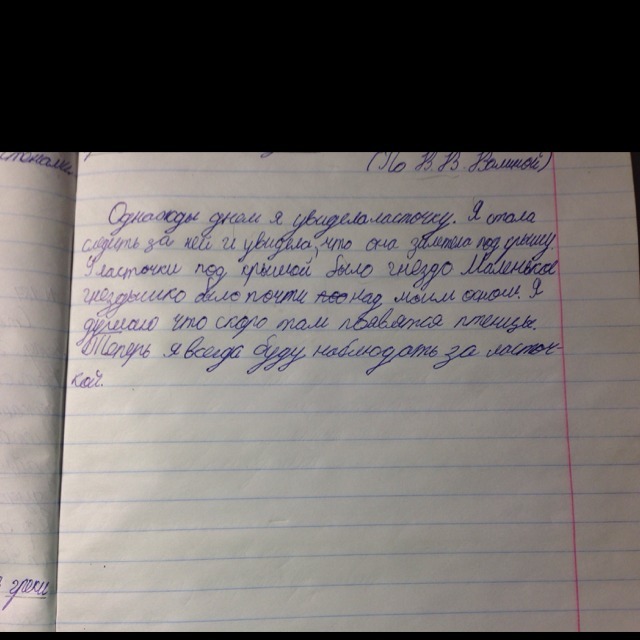 (По В.В. Волиной)
Однажды днем я увидела ласточку. Я стала
следить за ней и увидела, что она залетела под крышу
У ласточки под крышой было гнездо Маленькое
гнёздышко было почти над моим окном. Я
думаю что скоро там появятся птенцы.
Теперь я всегда буду наблюдать за ласточ-
кой.
греки